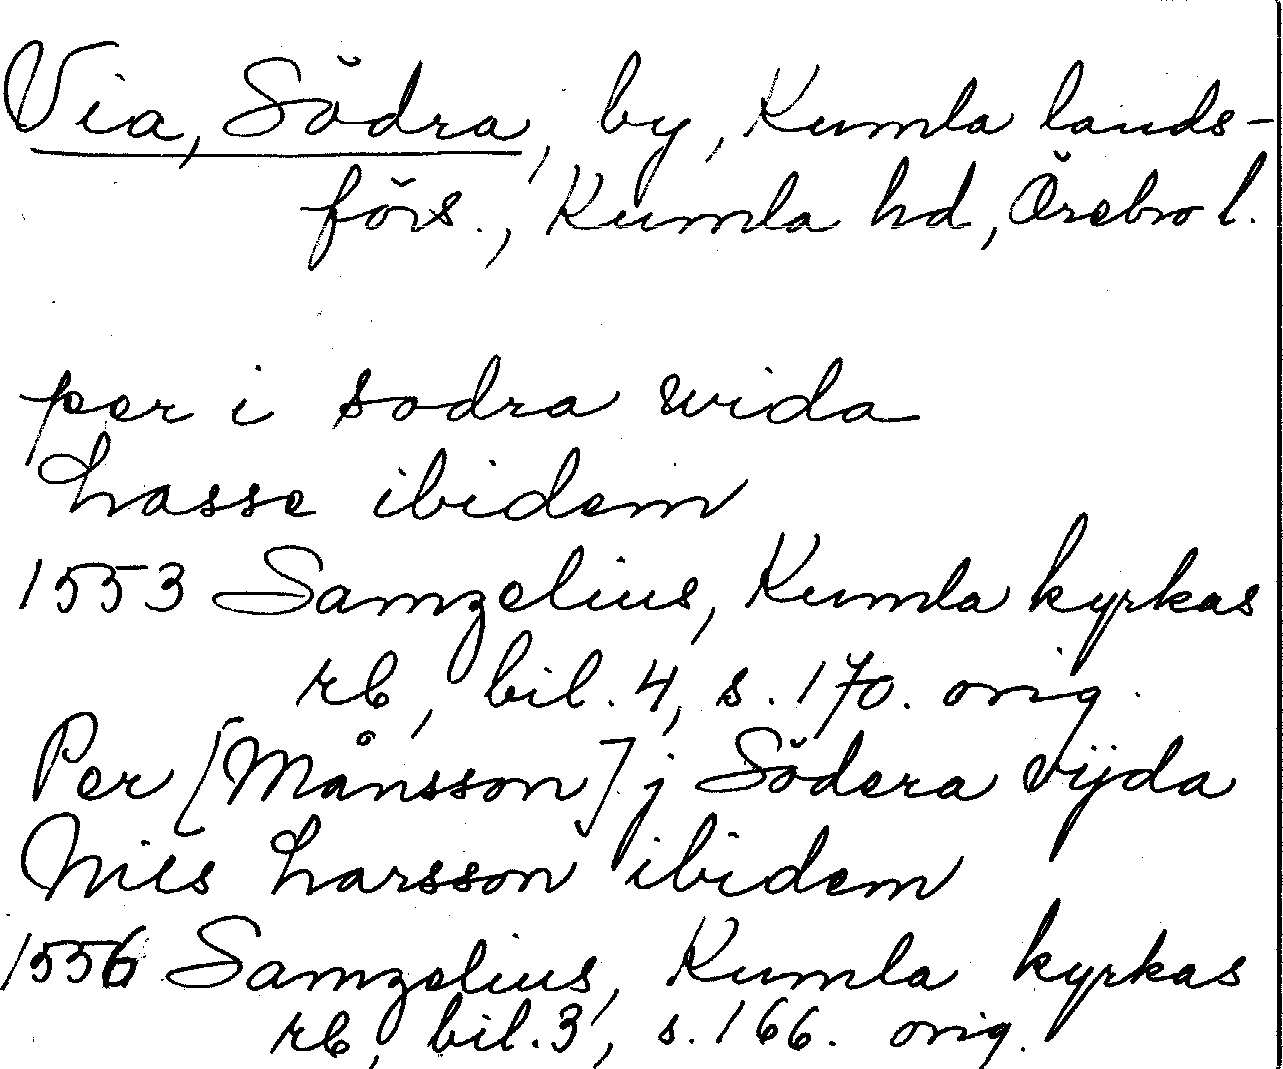 Via, Södra, by, Kumla lands-
förs., Kumla hd, Örebro l.
per i sodra wida
Lasse ibidem
1553 Samzelius, Kumla kyrkas
rb, bil. 4, s. 170. orig.
Per [Månsson] j Södera vijda
Nils Larsson ibidem
1556 Samzelius, Kumla kyrkas
rb, bil. 3, s. 166. orig.